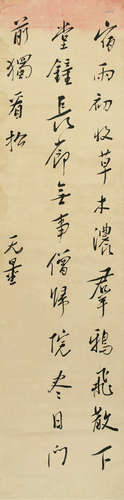 宿雨初收草木濃羣鴉飛散下
堂鐘長廊無事僧歸院盡日門
前獨看松